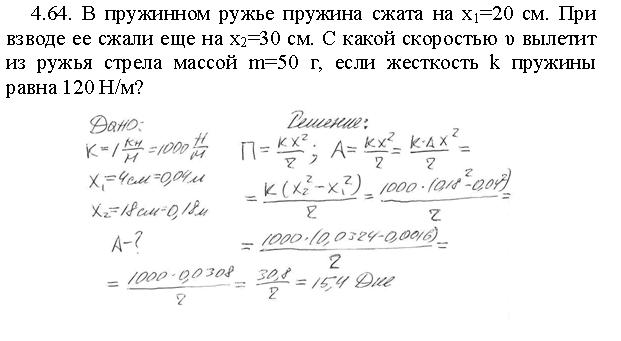 4.64. В пружинном ружье пружина сжата на x₁=20 см. При
взводе ее сжали еще на x₂=30 см. С какой скоростью υ вылетит
из ружья стрела массой m=50 г, если жесткость k пружины
равна 120 Н/м?
Дано:
K=1 кН/М=1000 Н/М
X₁=4см=0,04м
X₂=18см=0,18м
A-?
Решение:
П = KX²/2; A = KX²/2 = K·ΔX²/2 =
= K(X₂²-X₁²)/2 = 1000·(0,18²-0,04²)/2 =
= 1000·(0,0324-0,0016)/2 =
= 1000·0,0308/2 = 30,8/2 = 15,4 Дже